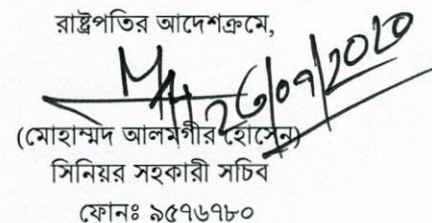 রাষ্ট্রপতির আদেশক্রমে,
26/07/2020
(মোহাম্মদ আলমগীর হোসেন)
সিনিয়র সহকারী সচিব
ফোনঃ ৯৫৭৬৭৮০